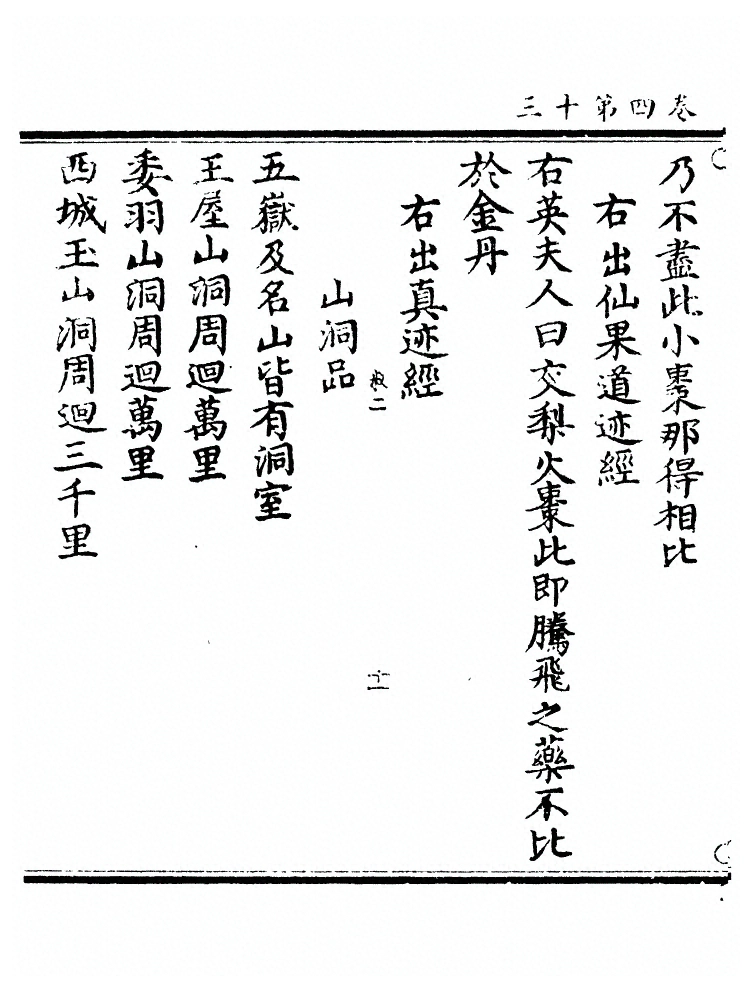 卷四第十三
乃不盡此小棗那得相比
右出仙果道迹經
右英夫人曰交梨火棗此即騰飛之藥不比
於金丹
右出真迹經
叔二
十一
山洞品
五嶽及名山皆有洞室
王屋山洞周迴萬里
委羽山洞周迴萬里
西城玉山洞周迴三千里